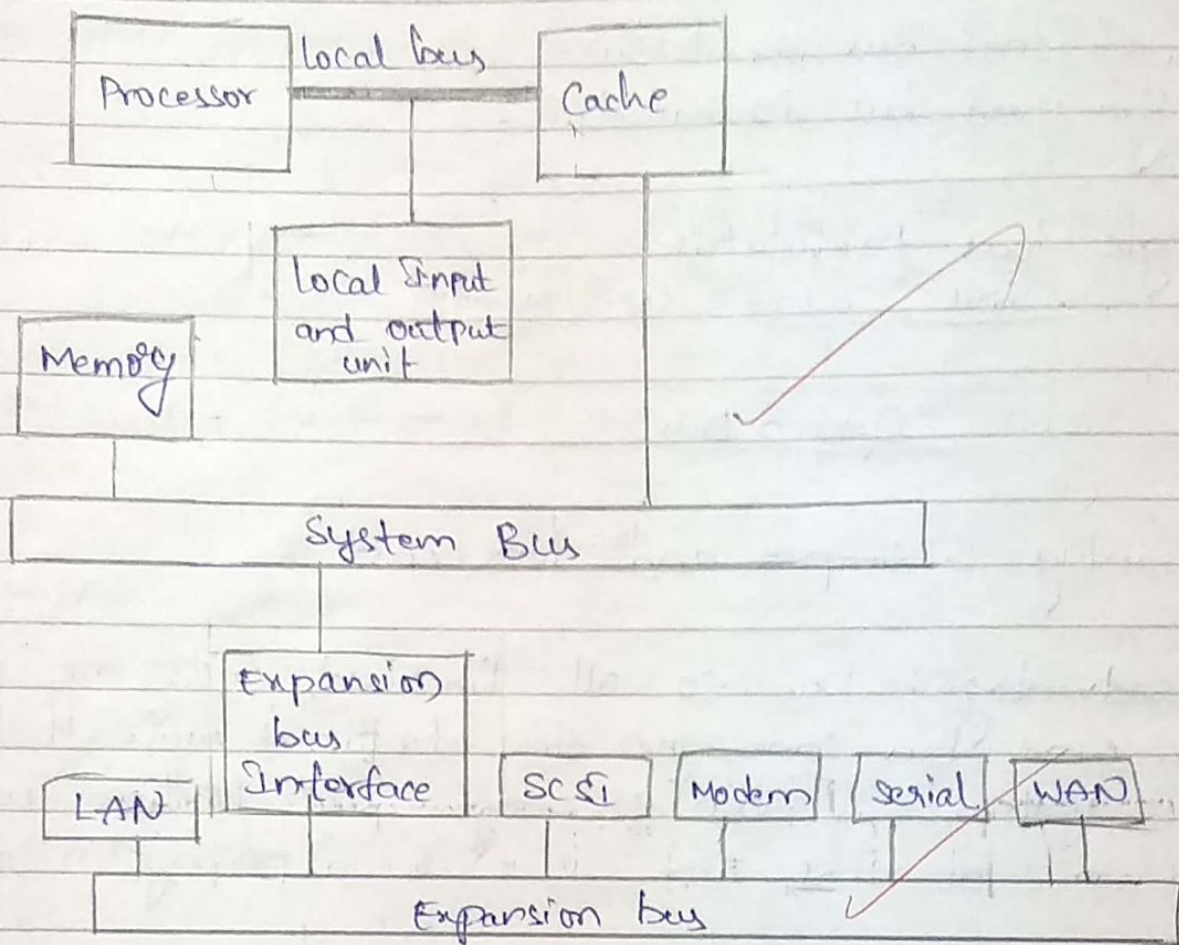 Local bus
Processor
Cache
Local Input
and output
unit
Memory
System Bus
Expansion
bus
Interface
LAN
SCSI
Modem
Serial
WAN
Expansion bus